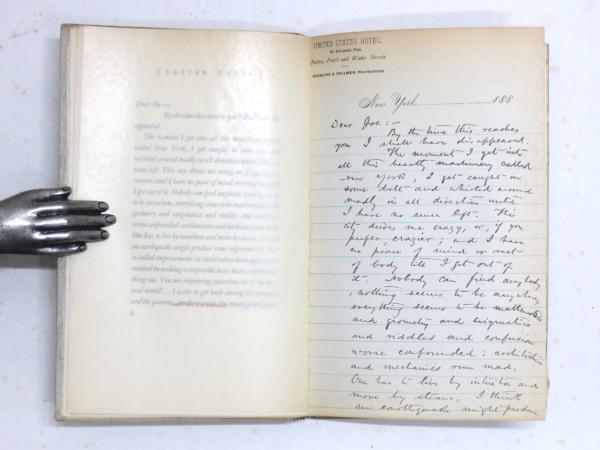 [ LETTER TWO. ]
Dear Joe:—
By the time this reaches you I shall have dis-
appeared.
The moment I got into all this
called New York, I got caught in some
whirled around madly in all directions
sense left. This city drives me crazy, or, if you
crazier; and I have no peace of mind or rest of body
till I get out of it. Nobody can find anybody, nothing seems
to be anywhere, everything seems to be mathematics and
geometry and enigmatics and riddles and confusion
worse confounded: architecture and mechanics run mad.
One has to live by intuition and move by steam. I think
an earthquake might produce some improvement. The
so-called improvements in civilization have
resulted in making it impossible to
thing out. You are improving yourselves out of the nat-
ural world. . . . I want to get back among the
and the parrots,
8
UNITED STATES HOTEL.
On European Plan.
Fulton, Pearl and Water Streets.
& VOLLMER, PROPRIETORS.
New York 188
Dear Joe:—
By the time this reaches
you I shall have disappeared.
The moment I got into
all this beastly machinery called
New York, I got caught in
some belt and whirled around
madly in all directions until
I have no sense left. This
city drives me crazy, or, if you
prefer, crazier; and I have
no peace of mind or rest
of body till I get out of
it. Nobody can find anybody
, nothing seems to be anywhere,
everything seems to be mathematics
and geometry and enigmatics
and riddles and confusion
worse confounded: architecture
and mechanics run mad.
One has to live by intuition and
move by steam. I think
an earthquake might produce